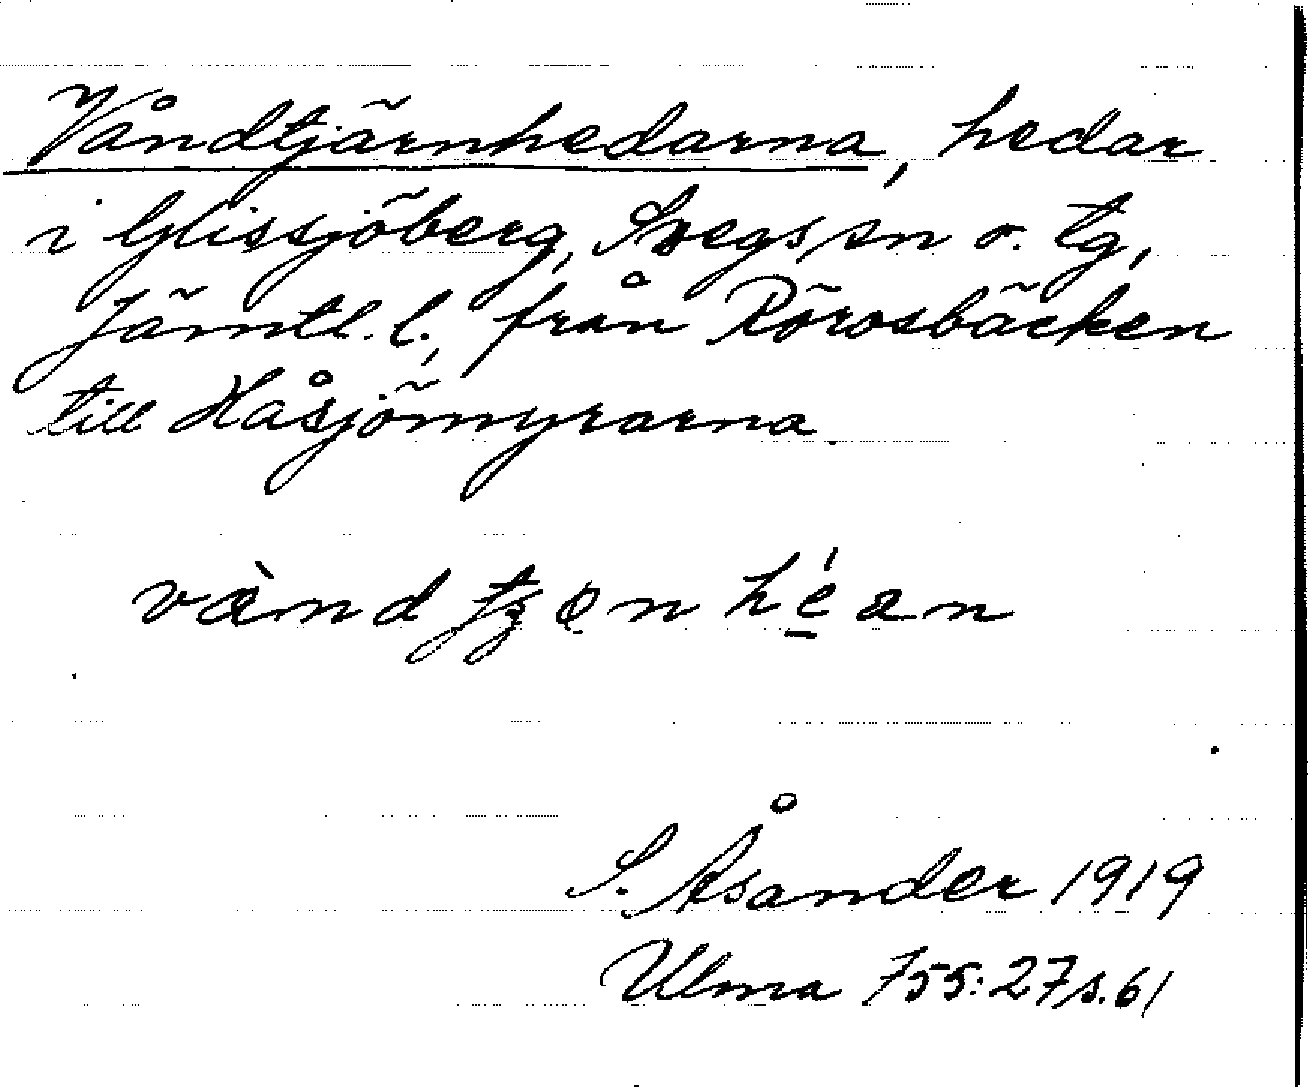 Våndtjärnhedarna, hedar
i Glissjöberg, Svegs sn o. tg,
Jämtl. l., från Rörosbäcken
till Håsjömyrarna.
S. Åsander 1919
Ulma 755:27 s. 61